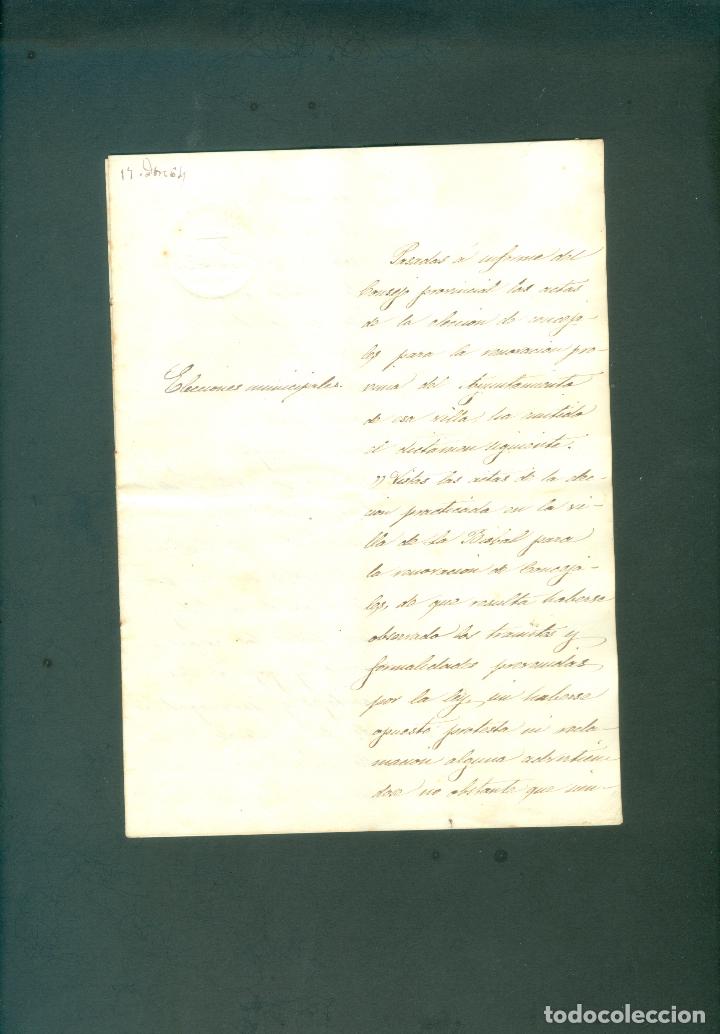 17. Dbre 64
Elecciones municipales.
Pasadas á informe del
Consejo provincial las actas
de la eleccion de conceja-
les para la renovacion pro-
xima del Ayuntamiento
de esa villa, ha emitido
el dictamen siguiente.
"Vistas las actas de la elec-
cion practicada en la vi-
lla de La Bisbal para
la renovacion de Conceja-
les, de que resulta haberse
observado los tramites y
formalidades prevenidas
por la ley, sin haberse
opuesto protesta ni recla-
macion alguna advirtien-
dose no obstante que nin-
todocoleccion
todocoleccion.net